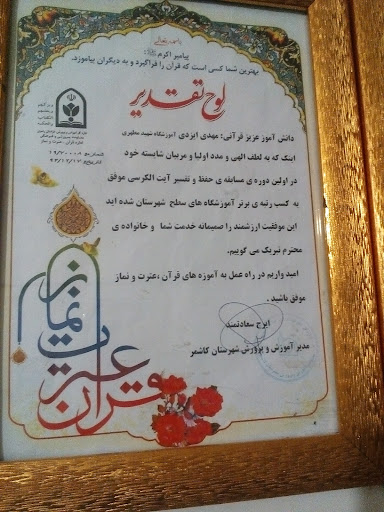 باسمه تعالی
پیامبر اکرم (ص):
بهترین شما کسی است که قرآن را فراگیرد و به دیگران بیاموزد.
لوح تقدیر
دانش آموز عزیز قرآنی: مهدی ایزدی آموزشگاه شهید مطهری
اینک که به لطف الهی و مدد اولیا و مربیان شایسته خود
در اولین دوره ی مسابقه ی حفظ و تفسیر آیت الکرسی موفق
به کسب رتبه ی برتر آموزشگاه های سطح شهرستان شده اید
این موفقیت ارزشمند را صمیمانه خدمت شما و خانواده ی
محترم تبریک می گوییم.
امید واریم در راه عمل به آموزه های قرآن ،عترت و نماز
موفق باشید .
ایرج سعادتمند
مدیر آموزش و پرورش شهرستان کاشمر
قرآن عترت نماز